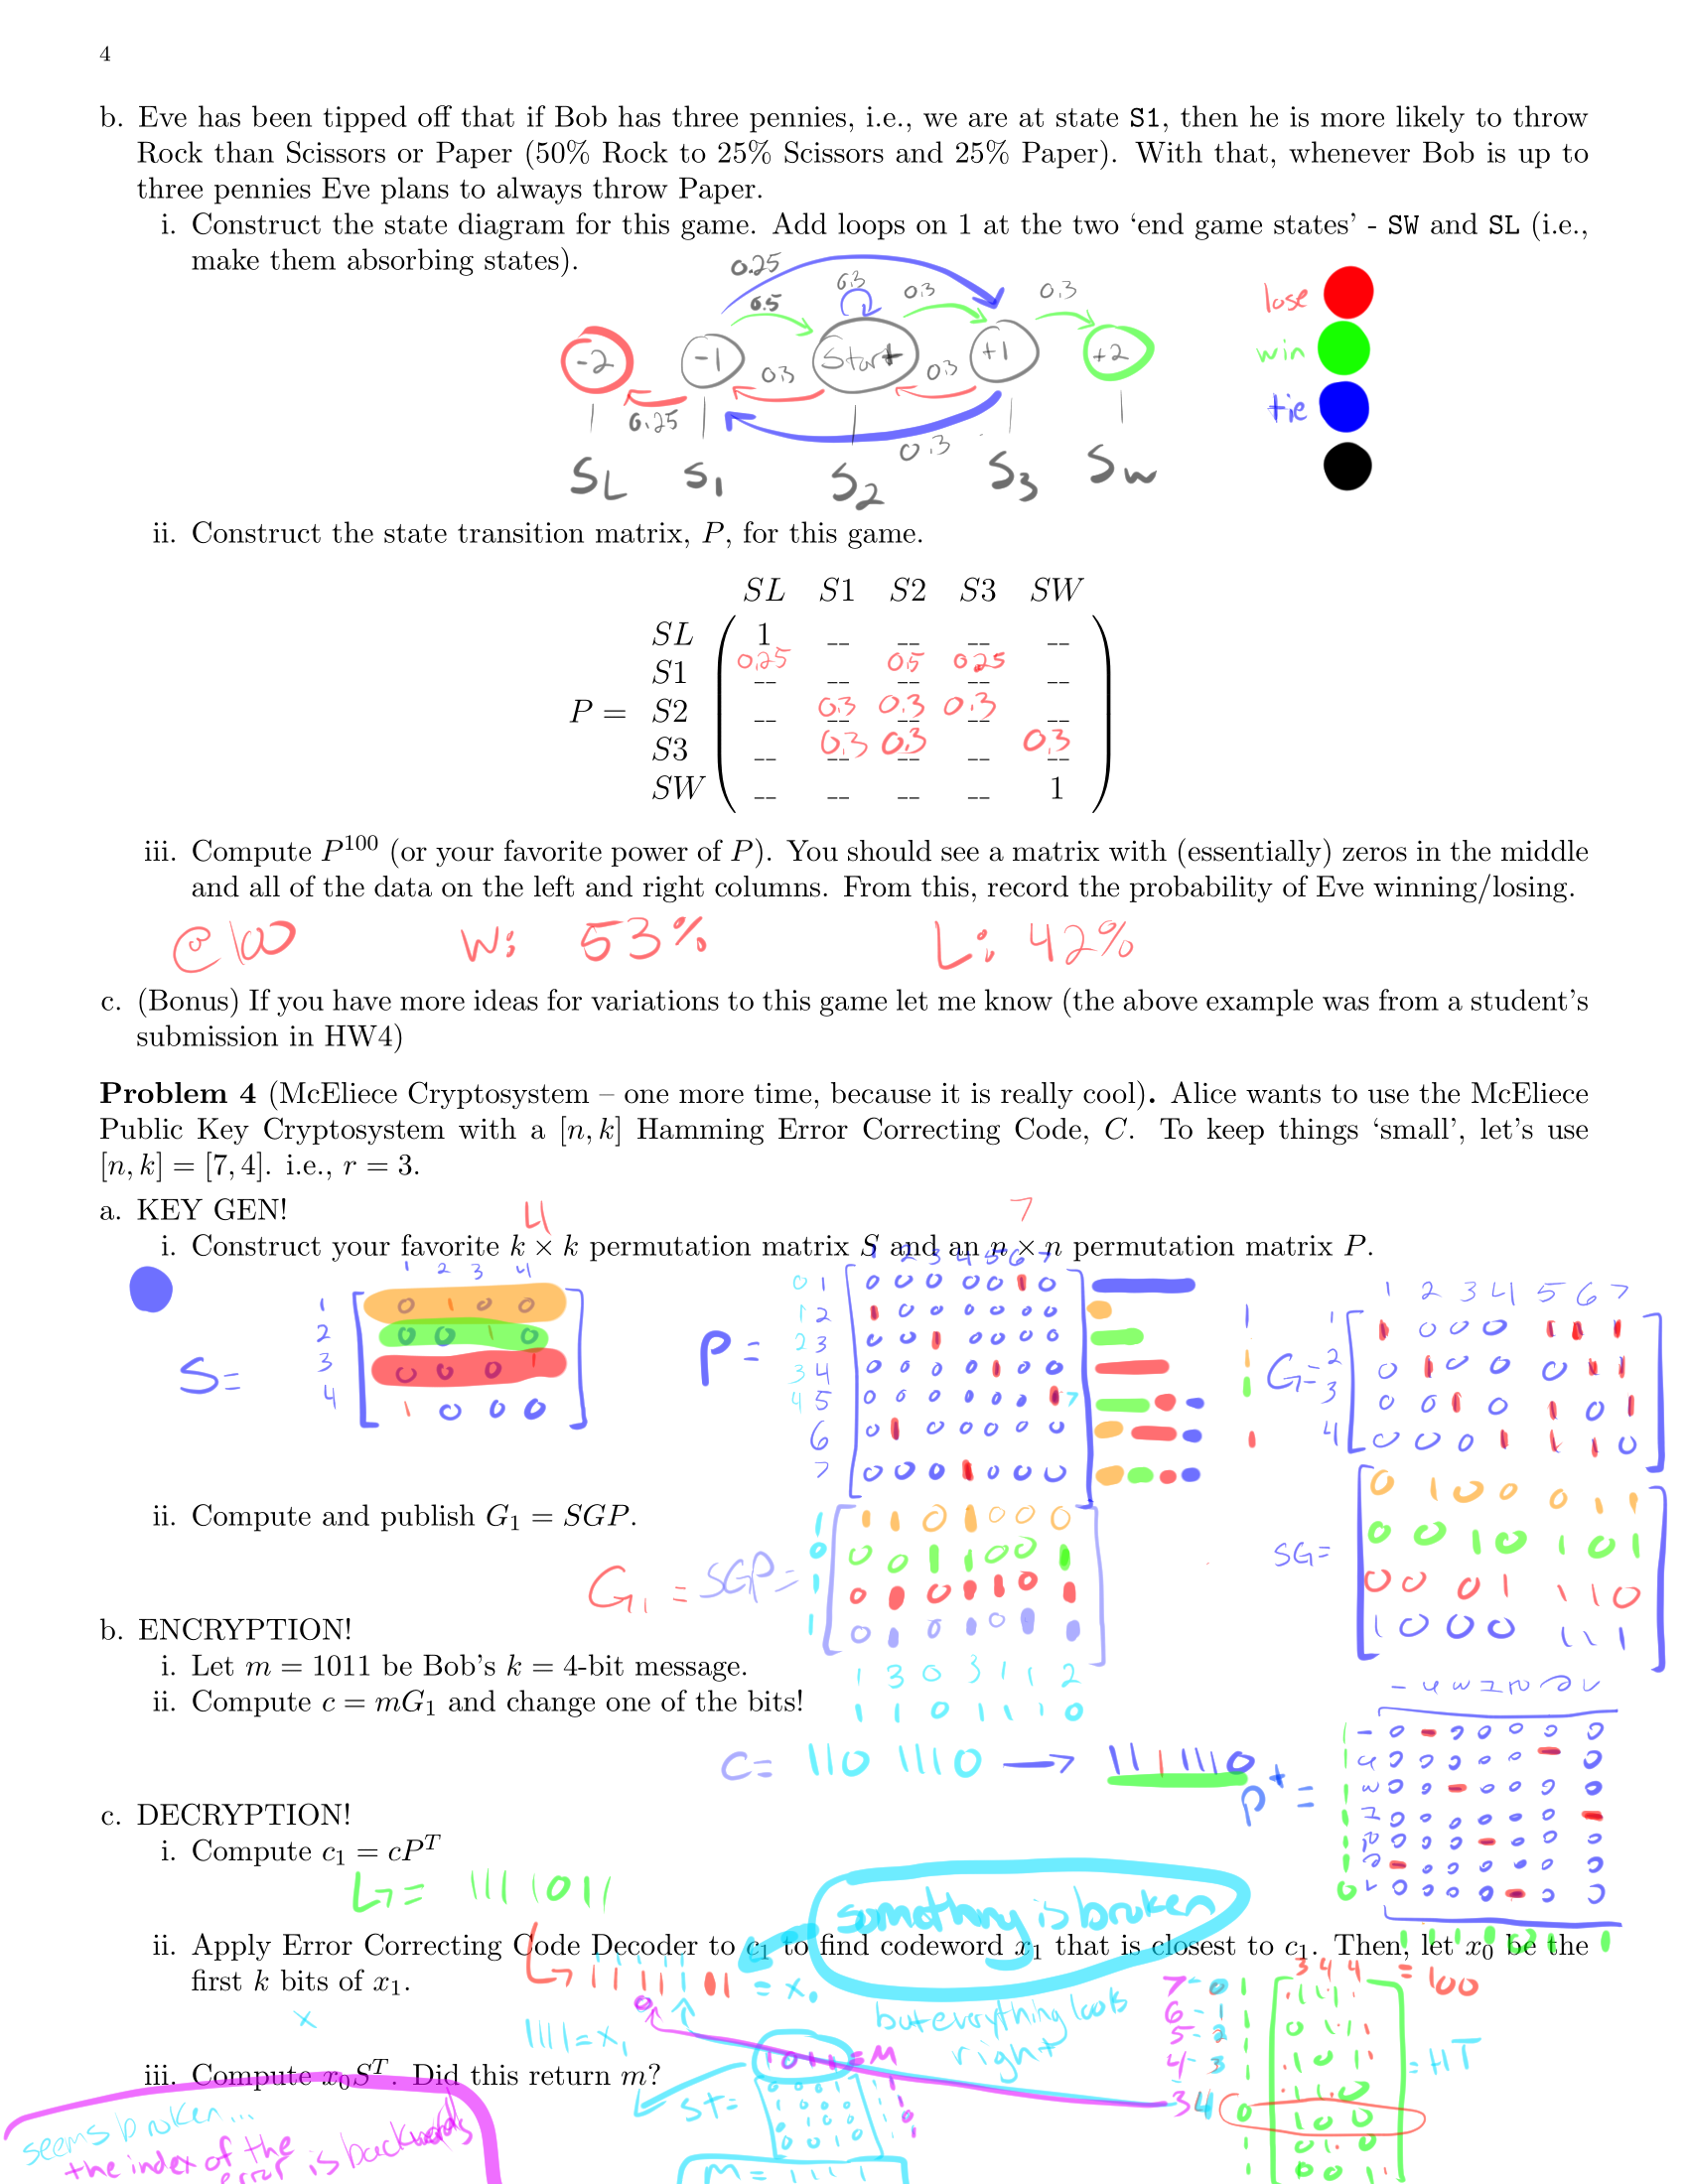 4
b. Eve has been tipped off that if Bob has three pennies, i.e., we are at state S1, then he is more likely to throw
Rock than Scissors or Paper (50% Rock to 25% Scissors and 25% Paper). With that, whenever Bob is up to
three pennies Eve plans to always throw Paper.
i. Construct the state diagram for this game. Add loops on 1 at the two ‘end game states’ - SW and SL (i.e.,
make them absorbing states).
0.25
0.5 0.3 0.3 0.3
lose
win
tie
-2 -1 Start +1 +2
0.25 0.3 0.3
0.3
SL S1 S2 S3 SW
ii. Construct the state transition matrix, P, for this game.
SL S1 S2 S3 SW
SL 1 __ __ __ __
S1 0.25 __ 0.5 0.25 __
P = S2 __ 0.3 0.3 0.3 __
S3 __ 0.3 0.3 __ 0.3
SW __ __ __ __ 1
iii. Compute P^100 (or your favorite power of P). You should see a matrix with (essentially) zeros in the middle
and all of the data on the left and right columns. From this, record the probability of Eve winning/losing.
@100 W: 53% L: 42%
c. (Bonus) If you have more ideas for variations to this game let me know (the above example was from a student’s
submission in HW4)
Problem 4 (McEliece Cryptosystem – one more time, because it is really cool). Alice wants to use the McEliece
Public Key Cryptosystem with a [n, k] Hamming Error Correcting Code, C. To keep things ‘small’, let’s use
[n, k] = [7, 4]. i.e., r = 3.
a. KEY GEN!
4 7
i. Construct your favorite k × k permutation matrix S and an n × n permutation matrix P.
S=
1 2 3 4
1 0 1 0 0
2 0 0 1 0
3 0 0 0 1
4 1 0 0 0
P=
1 2 3 4 5 6 7
0 1 0 0 0 0 0 1 0
1 2 1 0 0 0 0 0 0
2 3 0 0 1 0 0 0 0
3 4 0 0 0 0 1 0 0
4 5 0 0 0 0 0 0 1 7
6 0 1 0 0 0 0 0
7 0 0 0 1 0 0 0
G=
1 2 3 4 5 6 7
1 1 0 0 0 1 1 1
2 0 1 0 0 0 1 1
3 0 0 1 0 1 0 1
4 0 0 0 1 1 1 0
ii. Compute and publish G1 = SGP.
SG=
0 1 0 0 0 1 1
0 0 1 0 1 0 1
0 0 0 1 1 1 0
1 0 0 0 1 1 1
G1 = SGP=
1 1 1 0 1 0 0 0
0 0 0 1 1 0 0 1
1 0 1 0 1 1 0 1
1 0 1 0 1 0 1 1
b. ENCRYPTION!
i. Let m = 1011 be Bob’s k = 4-bit message.
1 3 0 3 1 1 2
ii. Compute c = mG1 and change one of the bits!
1 1 0 1 1 1 0
C= 110 1110 → 1111110
P^t =
c. DECRYPTION!
i. Compute c1 = cP^T
= 1111011
something is broken
ii. Apply Error Correcting Code Decoder to c1 to find codeword x1 that is closest to c1. Then, let x0 be the
first k bits of x1.
3 4 4 = 100
but everything looks
right
1111=x1
1011=M
= HT
iii. Compute x0S^T. Did this return m?
St=
seems broken...
the index of the
error is backwards
m= 1111